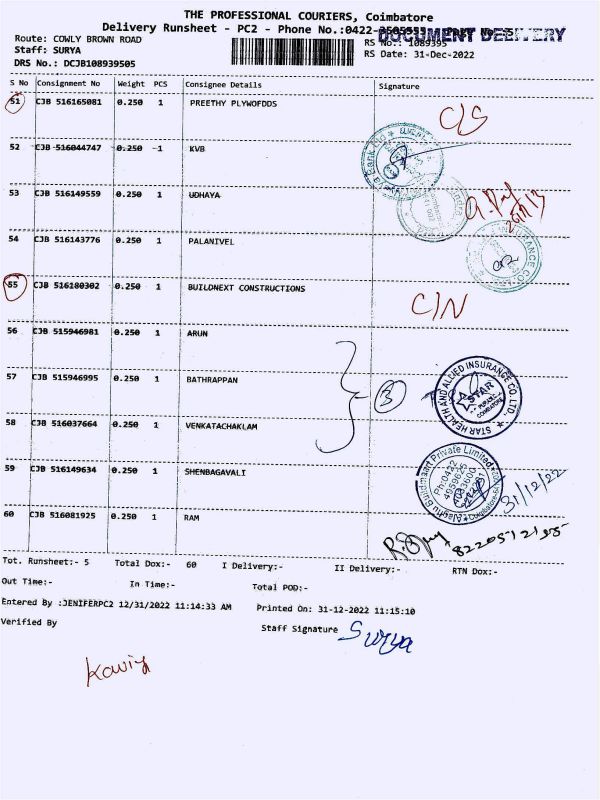 THE PROFESSIONAL COURIERS, Coimbatore
Delivery Runsheet - PC2 - Phone No.:0422-
DOCUMENT DELIVERY
Route: COWLY BROWN ROAD
RS No.: 1089395
Staff: SURYA
RS Date: 31-Dec-2022
DRS No.: DCJB108939505
S No Consignment No Weight PCS Consignee Details Signature
51 CJB 516165081 0.250 1 PREETHY PLYWOFDDS C/S
52 CJB 516044747 0.250 1 KVB
53 CJB 516149559 0.250 1 UDHAYA
54 CJB 516143776 0.250 1 PALANIVEL
55 CJB 516180302 0.250 1 BUILDNEXT CONSTRUCTIONS C/N
56 CJB 515946981 0.250 1 ARUN
57 CJB 515946995 0.250 1 BATHRAPPAN 3
STAR HEALTH AND ALLIED INSURANCE CO.LTD.
STAR
COIMBATORE
58 CJB 516037664 0.250 1 VENKATACHAKLAM
59 CJB 516149634 0.250 1 SHENBAGAVALI
Alaghu Buildmaart Private Limited
Ph:0422
31/12/22
60 CJB 516081925 0.250 1 RAM
Tot. Runsheet:- 5 Total Dox:- 60 I Delivery:- II Delivery:- RTN Dox:-
Out Time:- In Time:- Total POD:-
Entered By :JENIFERPC2 12/31/2022 11:14:33 AM Printed On: 31-12-2022 11:15:10
Verified By Staff Signature Surya